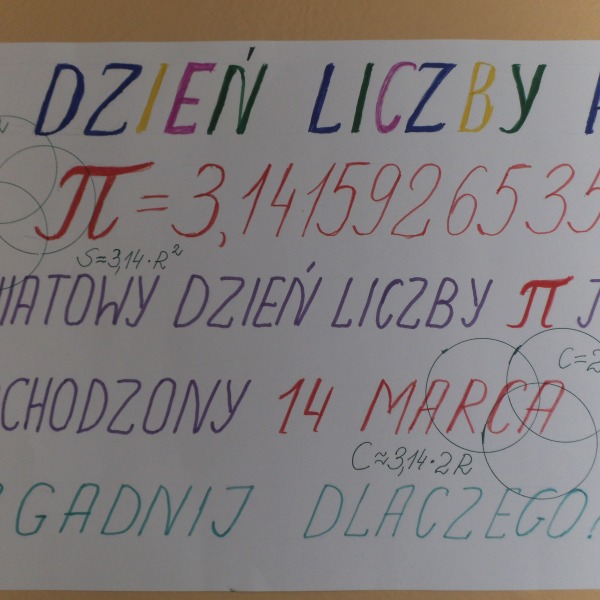 DZIEŃ LICZBY
π=3,1415926535
S≈3,14·R²
IATOWY DZIEŃ LICZBY π J
C=2
CHODZONY 14 MARCA
C≈3,14·2R
GADNIJ DLACZEGO?